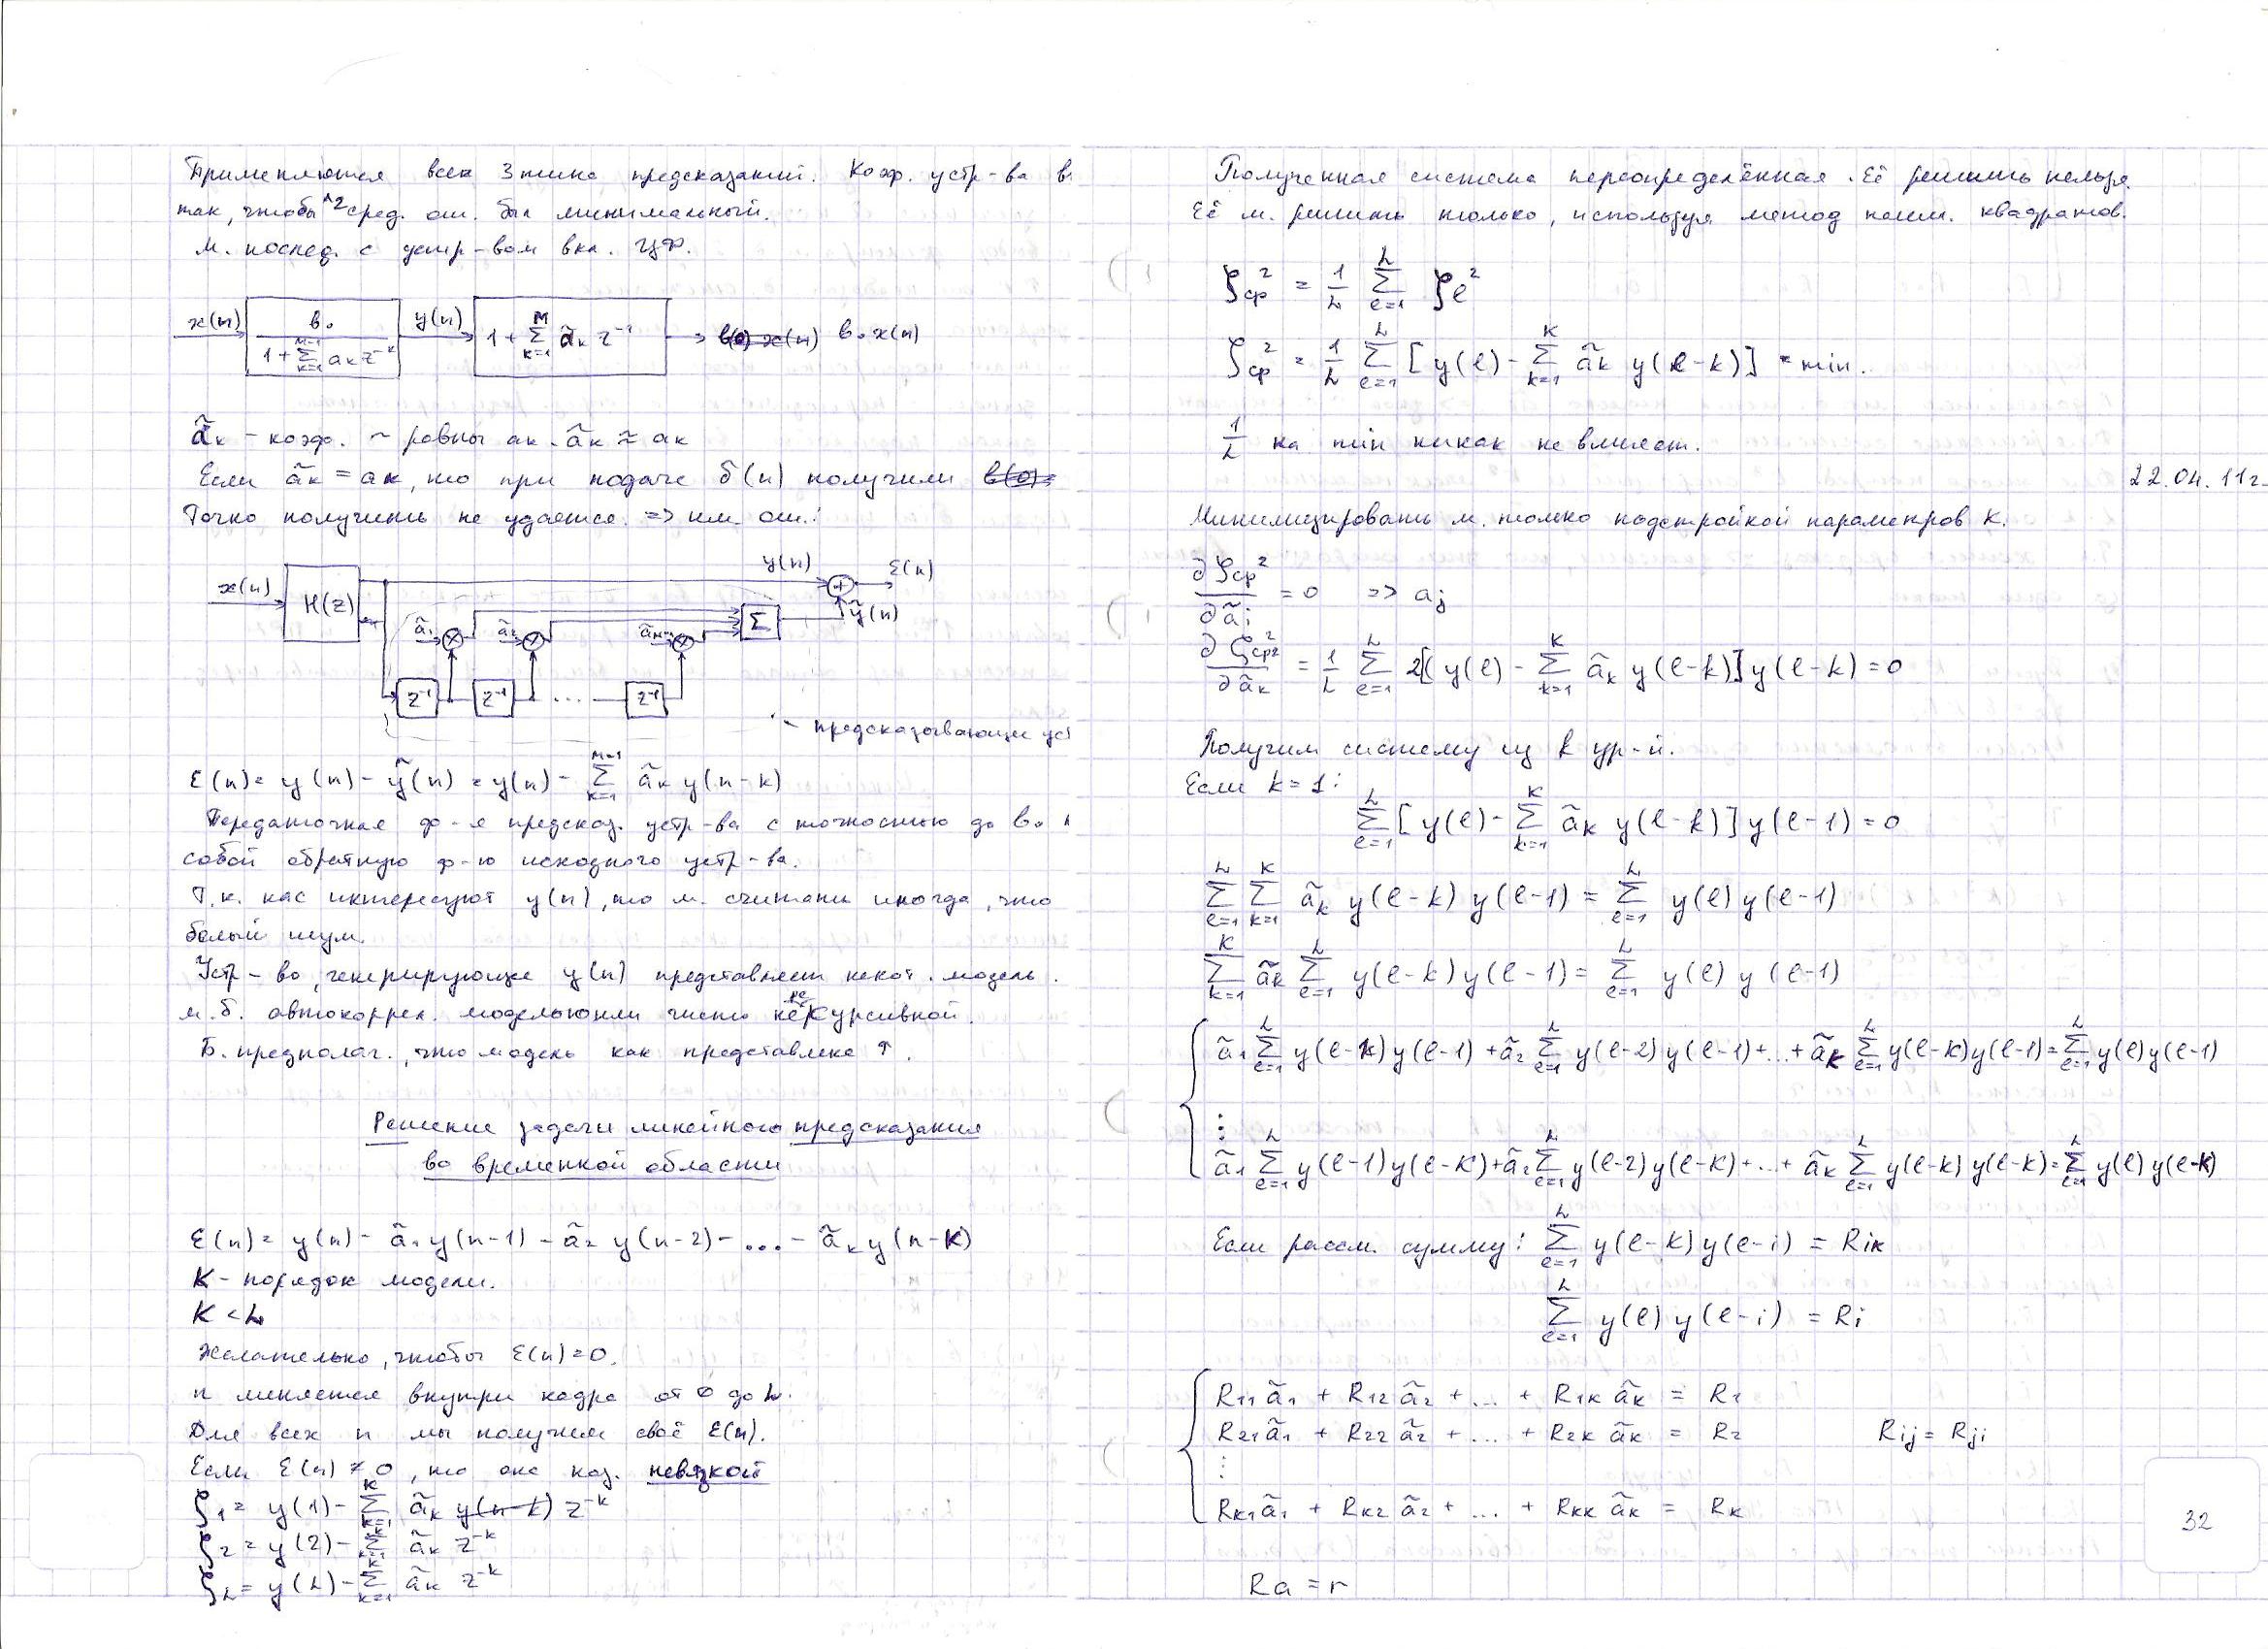 Применяются всех 3 типа предсказаний. Коэф. устр-ва в
так, чтобы ^2 сред. ош. был минимальный.
М. послед. с устр-вом вкл. ЦФ.
x(n) b₀ / (1+∑_{k=1}^{M-1} aₖ z^{-k}) y(n) 1+∑_{k=1}^{M} ãₖ z^{-1} → b₀x(n)
ãₖ – коэф. ~ равны aₖ. ãₖ ≈ aₖ
Если ãₖ = aₖ, то при подаче δ(n) получили b(0)
Точно получить не удаётся. => им. ош.:
x(n) H(z) y(n) + ε(n)
ỹ(n)
ã₁ ã₂ Σ
z⁻¹ z⁻¹ ... z⁻¹
– предсказывающее уст
ε(n) = y(n) - ỹ(n) = y(n) - ∑_{k=1}^{M-1} ãₖ y(n-k)
Передаточная ф-я предсказ. устр-ва с точностью до b₀
собой обратную ф-ю исходного устр-ва.
Т.к. нас интересуют y(n), то м. считать иногда, что
белый шум.
Устр-во, генерирующее y(n) представляет некот. модель.
м.б. автокоррел. моделью или чисто рекурсивной.
Б. предполаг., что модель как представлена ↑.
Решение задачи линейного предсказания
во временной области
ε(n) = y(n) - ã₁y(n-1) - ã₂ y(n-2) - ... - ãₖ y(n-K)
K – порядок модели.
K < L
Желательно, чтобы ε(n)=0.
n меняется внутри кадра от 0 до L.
Для всех n мы получаем своё ε(n).
Если ε(n) ≠ 0, то она наз. невязкой
ζ₁ = y(1) - ∑_{k=1}^{K} ãₖ y(n-k) z^{-k}
ζ₂ = y(2) - ∑_{k=1}^{K} ãₖ z^{-k}
ζ_L = y(L) - ∑_{k=1}^{K} ãₖ z^{-k}
Полученная система переопределённая. Её решить нельзя.
Её м. решить только, используя метод наим. квадратов.
ζ_ср² = 1/L ∑_{l=1}^{L} ζ_l²
ζ_ср² = 1/L ∑_{l=1}^{L} [y(l) - ∑_{k=1}^{K} ãₖ y(l-k)] = min.
1/L на min никак не влияет.
22.04.11г.
Минимизировать м. только подстройкой параметров K.
∂ζ_ср²/∂ãᵢ = 0 => aⱼ
∂ζ_ср²/∂ãₖ = 1/L ∑_{l=1}^{L} 2[y(l) - ∑_{k=1}^{K} ãₖ y(l-k)] y(l-k) = 0
Получим систему из k ур-й.
Если k=1:
∑_{l=1}^{L} [y(l) - ∑_{k=1}^{K} ãₖ y(l-k)] y(l-1) = 0
∑_{l=1}^{L} ∑_{k=1}^{K} ãₖ y(l-k) y(l-1) = ∑_{l=1}^{L} y(l) y(l-1)
∑_{k=1}^{K} ãₖ ∑_{l=1}^{L} y(l-k) y(l-1) = ∑_{l=1}^{L} y(l) y(l-1)
ã₁ ∑_{l=1}^{L} y(l-1) y(l-1) + ã₂ ∑_{l=1}^{L} y(l-2) y(l-1) + ... + ãₖ ∑_{l=1}^{L} y(l-K) y(l-1) = ∑_{l=1}^{L} y(l) y(l-1)
⋮
ã₁ ∑_{l=1}^{L} y(l-1) y(l-K) + ã₂ ∑_{l=1}^{L} y(l-2) y(l-K) + ... + ãₖ ∑_{l=1}^{L} y(l-K) y(l-K) = ∑_{l=1}^{L} y(l) y(l-K)
Если рассм. сумму: ∑_{l=1}^{L} y(l-K) y(l-i) = Rᵢₖ
∑_{l=1}^{L} y(l) y(l-i) = Rᵢ
R₁₁ã₁ + R₁₂ã₂ + ... + R₁ₖãₖ = R₁
R₂₁ã₁ + R₂₂ã₂ + ... + R₂ₖãₖ = R₂ Rᵢⱼ = Rⱼᵢ
⋮
Rₖ₁ã₁ + Rₖ₂ã₂ + ... + Rₖₖãₖ = Rₖ
32
Ra = r